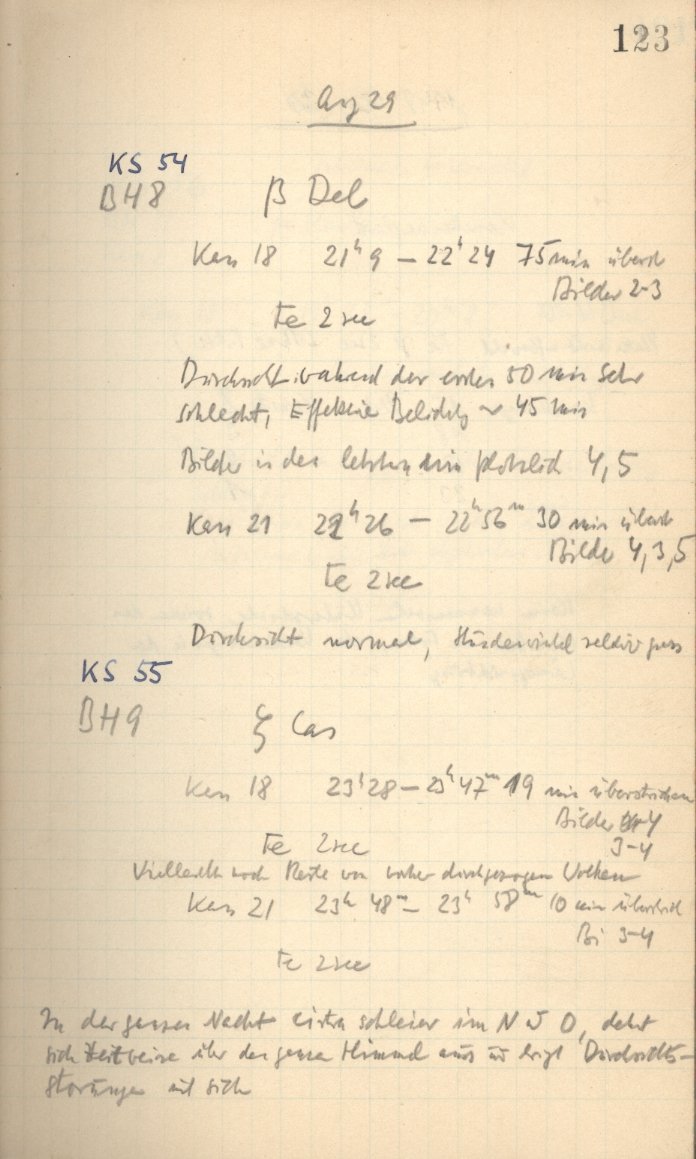 123
Aug 29
KS 54
BH8 β Del
Kass 18 21ʰ9 – 22ʰ24 75 min überst
Bilder 2-3
Fe 2 sec
Durchsicht während der ersten 50 min Sehr
schlecht, Effektive Belichtg ~ 45 min
Bilder in den letzten min plötzlich 4,5
Kass 21 22ʰ26 – 22ʰ56ᵐ 30 min überst
Bilder 4,3,5
Fe 2 sec
Durchsicht normal, Stundenwinkel relativ gross
KS 55
BH9 ζ Cas
Kass 18 23ʰ28 – 23ʰ47ᵐ 19 min überstrichen
Bilder
3-4
Fe 2 sec
Vielleicht noch Reste von vorher durchgezogenen Wolken
Kass 21 23ʰ 48ᵐ – 23ʰ 58ᵐ 10 min überstrich
Bi 3-4
Fe 2 sec
In der ganzen Nacht cirren schleier im N u O, dehnt
sich zeitweise über den ganzen Himmel aus u bringt Durchsichts-
störungen mit sich